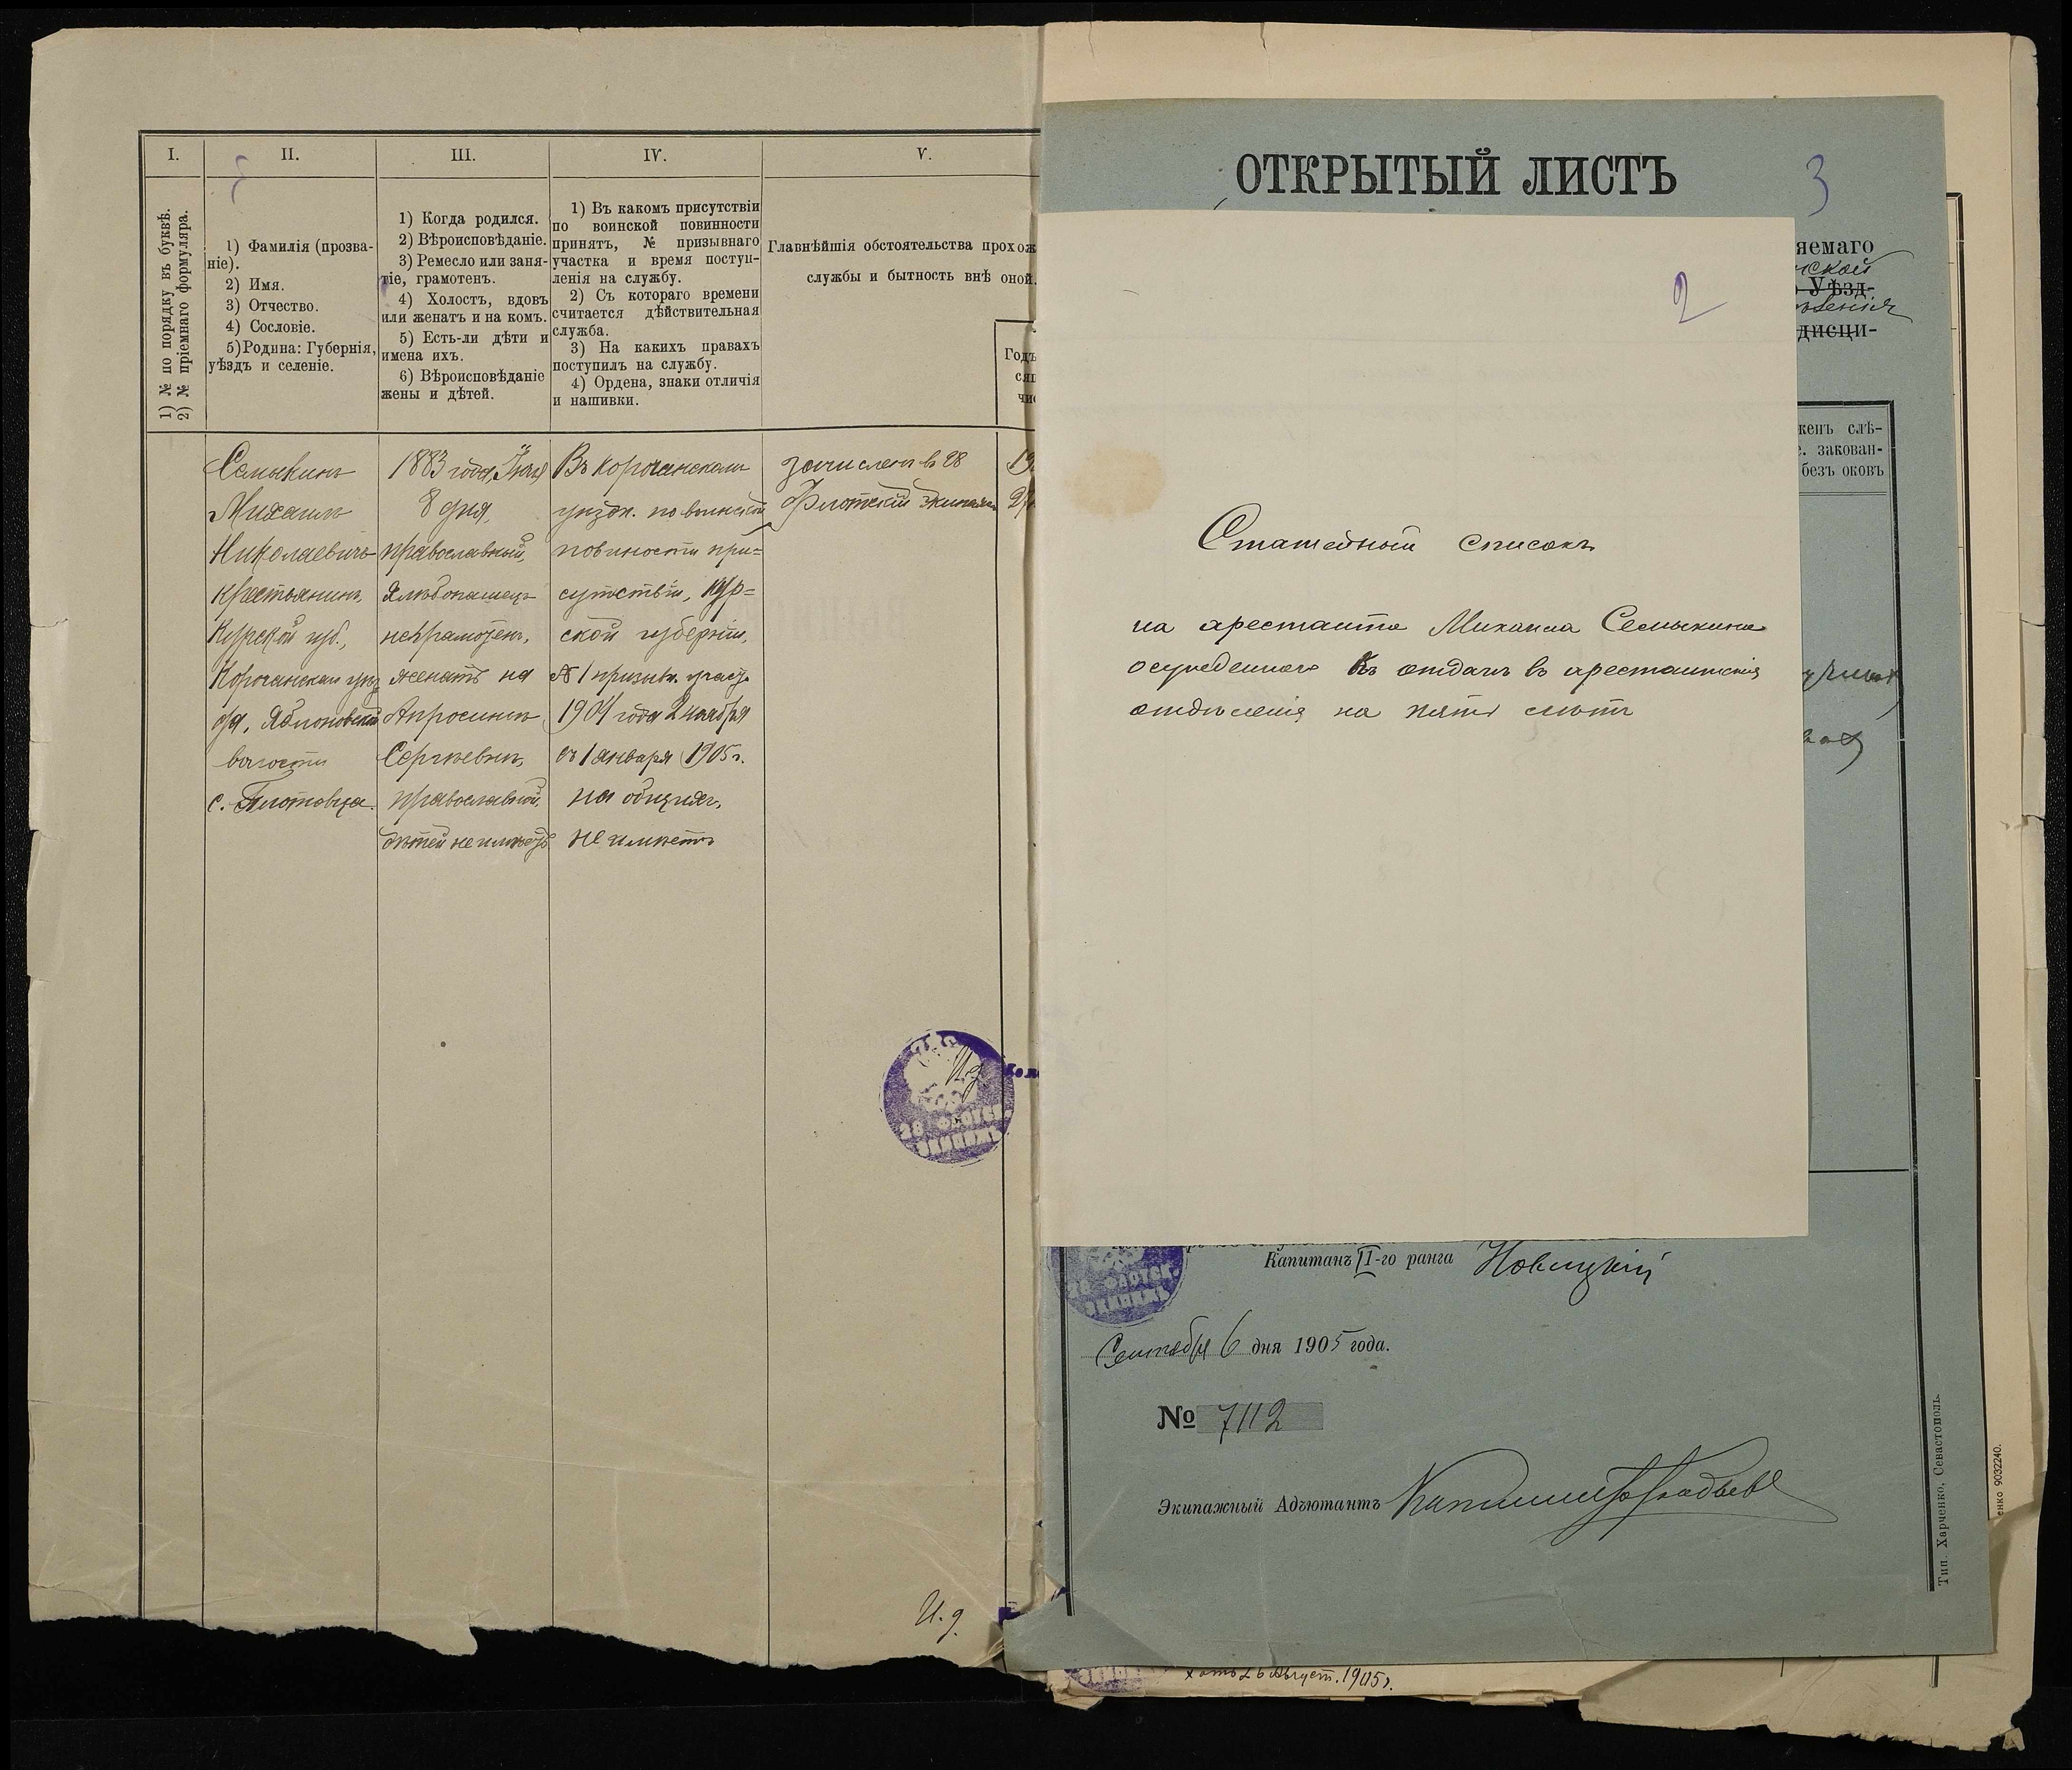 I.
II.
III.
IV.
V.
1) № по порядку въ буквѣ.
2) № пріемнаго формуляра.
1) Фамилія (прозва-
ніе).
2) Имя.
3) Отчество.
4) Сословіе.
5) Родина: Губернія,
уѣздъ и селеніе.
1) Когда родился.
2) Вѣроисповѣданіе.
3) Ремесло или заня-
тіе, грамотенъ.
4) Холостъ, вдовъ
или женатъ и на комъ.
5) Есть-ли дѣти и
имена ихъ.
6) Вѣроисповѣданіе
жены и дѣтей.
1) Въ какомъ присутствіи
по воинской повинности
принятъ, № призывнаго
участка и время поступ-
ленія на службу.
2) Съ котораго времени
считается дѣйствительная
служба.
3) На какихъ правахъ
поступилъ на службу.
4) Ордена, знаки отличія
и нашивки.
Главнѣйшія обстоятельства прохож
службы и бытность внѣ оной.
Годъ
Семыкинъ
Михаилъ
Николаевичъ
крестьянинъ,
Курской губ.,
Корочанскаго
Яблоновской
волости
с.
1883 года,
8 дня,
православный,
хлѣбопашецъ
неграмотенъ,
женатъ на
Апросиніи
Сергѣевнѣ,
православной,
дѣтей не имѣетъ
Въ Корочанскомъ
уѣздн. по воинской
повинности при=
сутствіи, Кур=
ской губерніи,
№ 1 призывн. участ.
1904 года 2 ноября
съ 1 января 1905 г.
на общихъ,
не имѣетъ
зачисленъ въ 28
Флотскій экипажъ
28 ФЛОТСК.
ЭКИПАЖЪ
И. д.
ОТКРЫТЫЙ ЛИСТЪ
3
яемаго
Уѣзд-
дисци-
женъ слѣ-
е. закован-
безъ оковъ
2
Статейный списокъ
на арестанта Михаила Семыкина
осужденнаго къ отдачѣ въ арестантскія
отдѣленія на пять лѣтъ
Капитанъ II-го ранга Новицкій
28 ФЛОТСК.
ЭКИПАЖЪ
Сентября 6 дня 1905 года.
№ 7112
Экипажный Адъютантъ
Тип. Харченко, Севастополь.
енко 9032240.
26 Август. 1905 г.